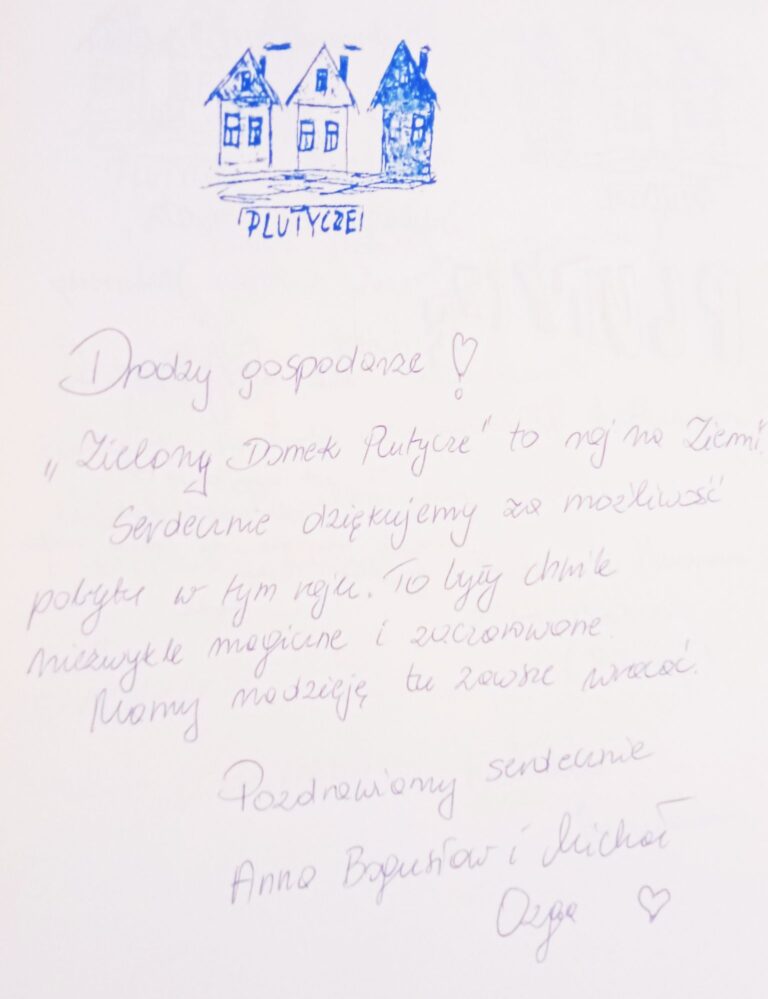 PLUTYCZE
Drodzy gospodarze!
"Zielony Domek Plutycze" to raj na Ziemi.
Serdecznie dziękujemy za możliwość
pobytu w tym raju. To były chwile
niezwykle magiczne i zaczarowane.
Mamy nadzieję tu zawsze wracać.
Pozdrawiamy serdecznie
Anna Bogusław i Michał
Ozga